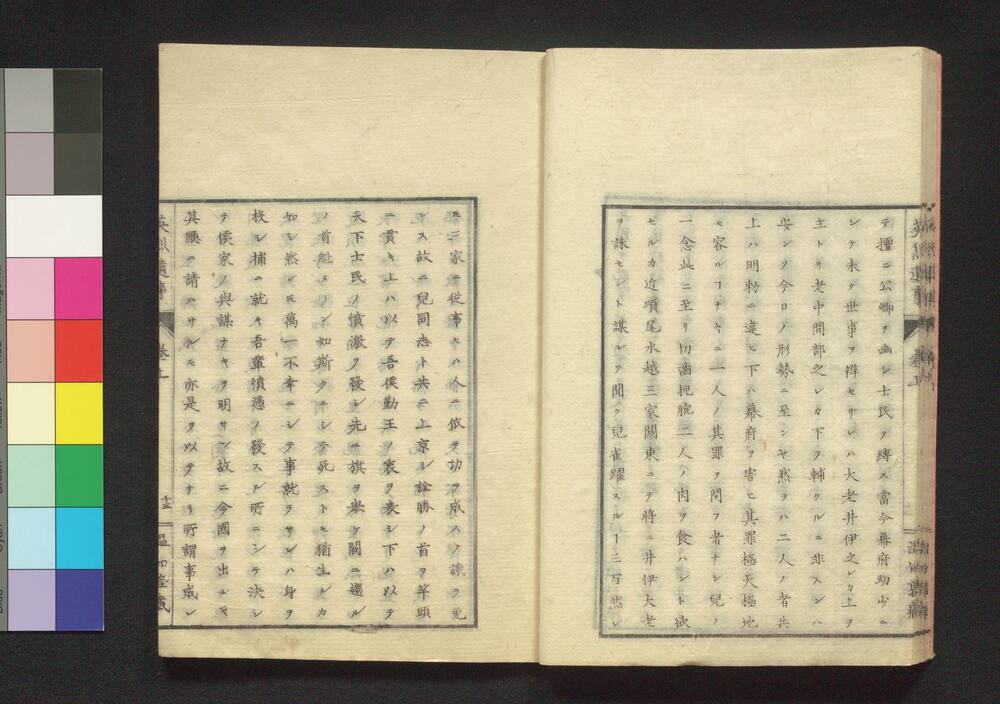 テ擅ニ公卿ヲ幽シ士民ヲ縛ス當今幕府幼少ニ
シテ未タ世事ヲ辨セリレハ大老井伊之レカ上ヲ
主トリ老中間部之レカ下ヲ輔クルニ非スンハ
安ンソ今日ノ形勢ニ至ンヤ然ラハ二人ノ者共
上ハ明勅ニ違ヒ下ハ幕府ヲ害ヒ其罪極天極地
モ容ルヿナキニ一人ノ其罪ヲ問フ者ナシ兒ノ
一念此ニ至リ切齒扼腕二人ノ肉ヲ食ハント欲
セルカ近頃尾水越三家關東ニテ將ニ井伊大老
ヲ誅セント謀ルヲ聞ク兒雀躍スルヿ三百然レ
𪜈三家ニ從事セハ人ニ依テ功ヲ成スノ誅ヲ免
レス故ニ兒同志ト共ニ上京シ詮勝ノ首ヲ竿頭
ニ貫キ上ハ以テ吾侯勤王ノ衷ヲ表シ下ハ以テ
天下士民ノ憤激ヲ發シ先ニ旗ヲ擧ケ闕ニ趨ル
ノ首魁タラン如斯クニシテ死ストモ猶生ルカ
如シ然レ𪜈萬一不幸ニシテ事就ラサレハ身ヲ
挺シ捕ニ就キ吾輩憤懣ノ發スル所ニシテ決シ
テ侯家ノ與謀ナキヲ明サン故ニ今國ヲ出ルヤ
其願ニ請ハサルモ亦是ヲ以テナリ所謂事成レ
英烈遺事 卷上 十二